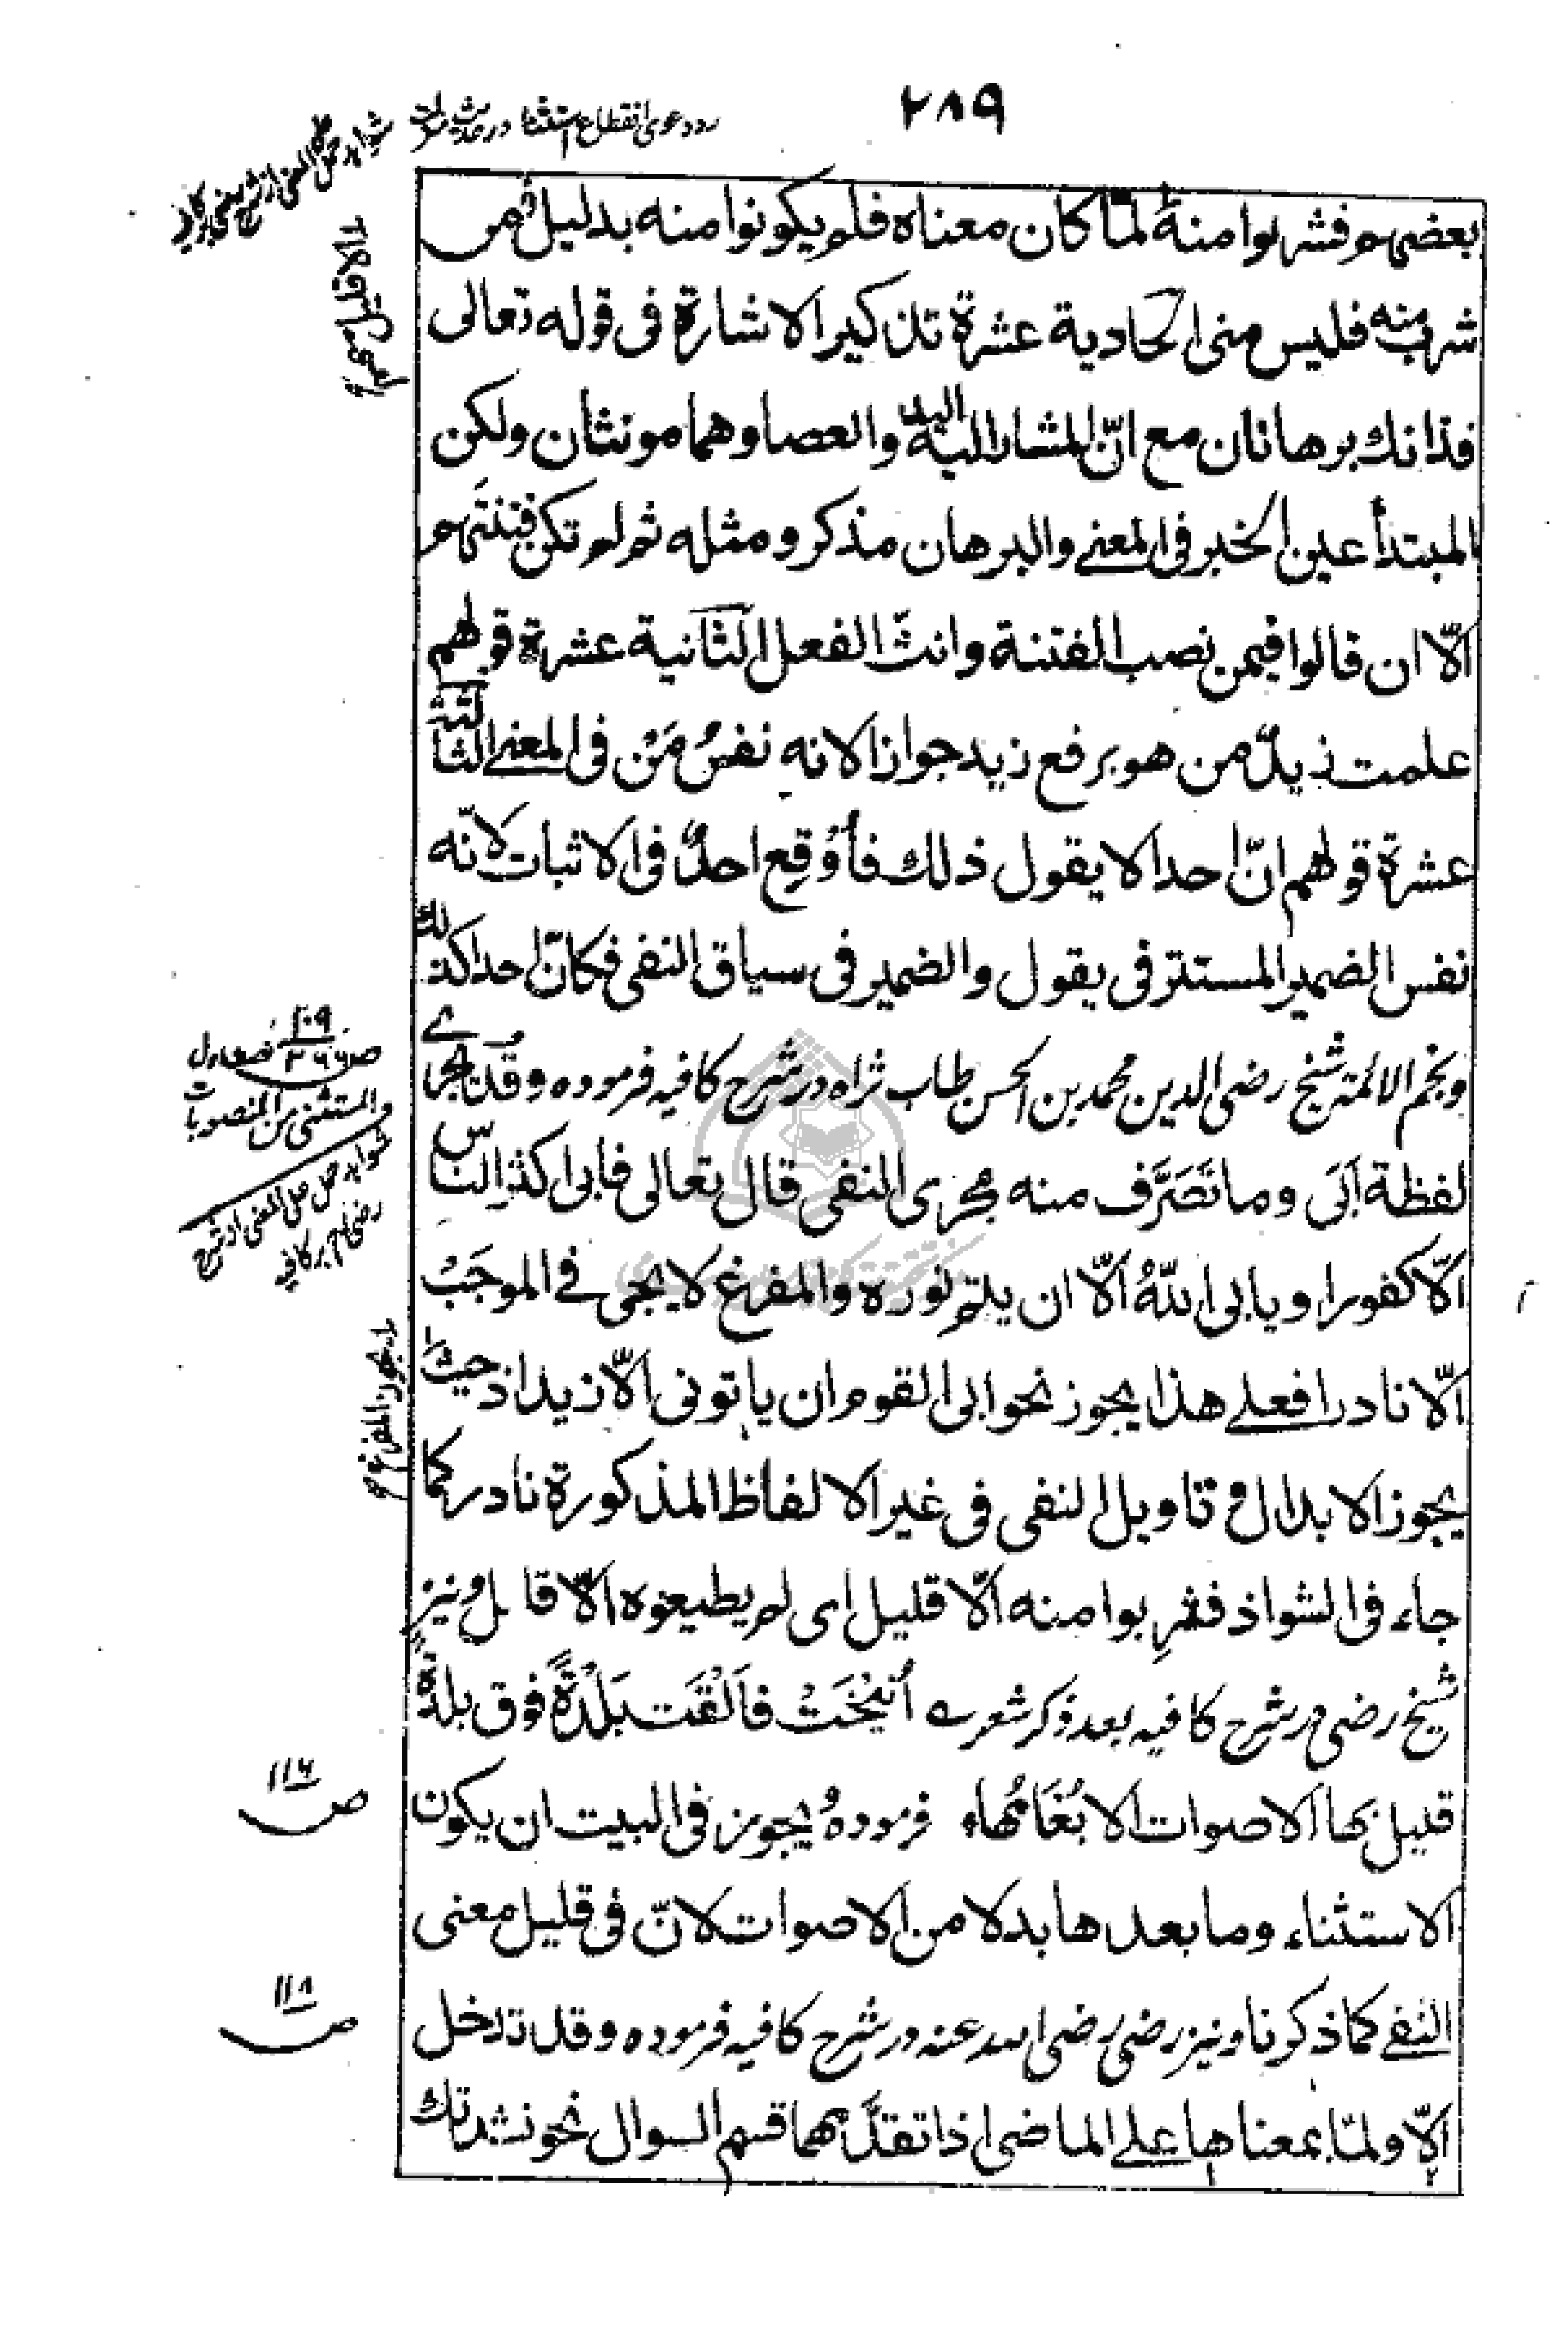 ۲۸۹
رد دعوی انقطاع استثنا در حدیث منزلت
شواهد حمل علی المعنی از شرح رضی بر کافیه
بعضهم فشربوا منه لمّا كان معناه فلم يكونوا منه بدليل فمن
شرب منه فليس منى الحادية عشرة تذكير الاشارة فى قوله تعالى
فذانك برهانان مع انّ المشار اليه اليد والعصا وهما مونثان ولكن
المبتدأ عين الخبر فى المعنے والبرهان مذكر ومثله ثم لم تكن فتنتَهم
الّا ان قالوا فيمن نصب الفتنة وانث الفعل الثانية عشرة قولهم
علمت زيدٌ من هو برفع زيد جوازا لانه نفسُ مَنْ فى المعنے الثالثة
عشرة قولهم انّ احدا لا يقول ذلك فأُوقِع احدٌ فى الاثبات لانّه
نفس الضمير المستتر فى يقول والضمير فى سياق النفى فكانّ احدا كذلك
ونجم الائمة شیخ رضی الدین محمد بن الحسن طاب ثراه در شرح کافیه فرموده وقد يجرے
لفظة اَبَى وما تَصَرَّف منه مجرى النفى قال تعالى فابى اكثر الناس
الّا كفورا ويابى اللّهُ الّا ان يتم نوره والمفرغ لا يجى فے الموجَبْ
الّا نادرا فعلے هذا يجوز نحو ابى القوم ان ياتونى الّا زيدا اذ حيث
يجوز الابدال و تاويل النفى فى غير الالفاظ المذكورة نادر كما
جاء فى الشواذ فشرِبوا منه الّا قليل اى لم يطيعوه الّا قليل ونیز
شیخ رضی در شرح کافیه بعد ذکر شعرے اُنيْخَتْ فاَلْقَت بَلْدَةً فوق بلدة
قليل بها الاصوات الا بُغَامُها، فرموده يجوز فى البيت ان يكون
الاستثناء وما بعدها بدلا من الاصوات لانّ فى قليل معنى
النفے كما ذكرنا ونیز رضی رضی الله عنه در شرح کافیه فرموده وقد تدخل
الّا ولمّا بمعناها علے الماضى اذا تقدَّمهما قسم السوال نحو نشدتك
ص ۱۰۹
۳۶۶
والمستثنى من المنصوبات
شواهد حمل علی المعنی از شرح
رضی بر کافیه
ص ۱۱۶
ص ۱۱۸